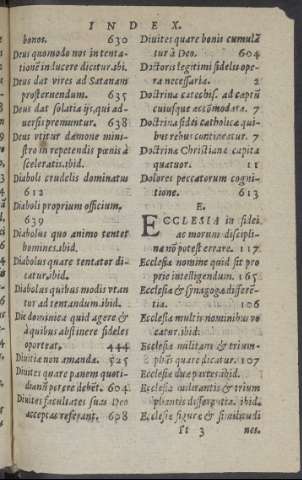 INDEX.
bonos. 630
Deus quomodo nos in tenta-
tionẽ inducere dicitur. ibi.
Deus dat vires ad Satanam
prosternendum. 635
Deus dat solatia ijs, qui ad-
uersis premuntur. 638
Deus vtitur dæmone mini-
stro in repetendis pœnis à
sceleratis. ibid.
Diaboli crudelis dominatus
612
Diaboli proprium officium.
639
Diabolus quo animo tentet
homines. ibid.
Diabolus quare tentator di-
catur. ibid.
Diabolus quibus modis vtan
tur ad tentandum. ibid.
Die dominica quid agere &
à quibus abstinere fideles
oporteat. 444
Diuitiæ non amandæ. 525
Diuites quare panem quoti-
dianũ petere debẽt. 604
Diuites facultates suas Deo
acceptas referant. 608
Diuites quare bonis cumulã
tur à Deo. 604
Doctoris legitimi fidelis ope-
ra necessaria. 2
Doctrina catechis. ad captũ
cuiusque accõmodata. 7
Doctrina fidei Catholicæ qui-
bus rebus contineatur. 7
Doctrinæ Christianæ capita
quatuor. 11
Dolores peccatorum cogni-
tione. 613
E.
ECCLESIA in fidei
ac morum discipli-
na nõ potest errare. 117
Ecclesiæ nomine quid sit pro
prie intelligendum. 165
Ecclesiæ & synagogæ differẽ-
tia. 106
Ecclesia multis nominibus vo
catur. ibid.
Ecclesia militans & trium-
phãs quare dicatur. 107
Ecclesiæ duæ partes. ibid.
Ecclesiæ militantis & trium
phantis differentia. ibid.
Ecclesiæ figuræ & similitudi
ſt 3 nes.